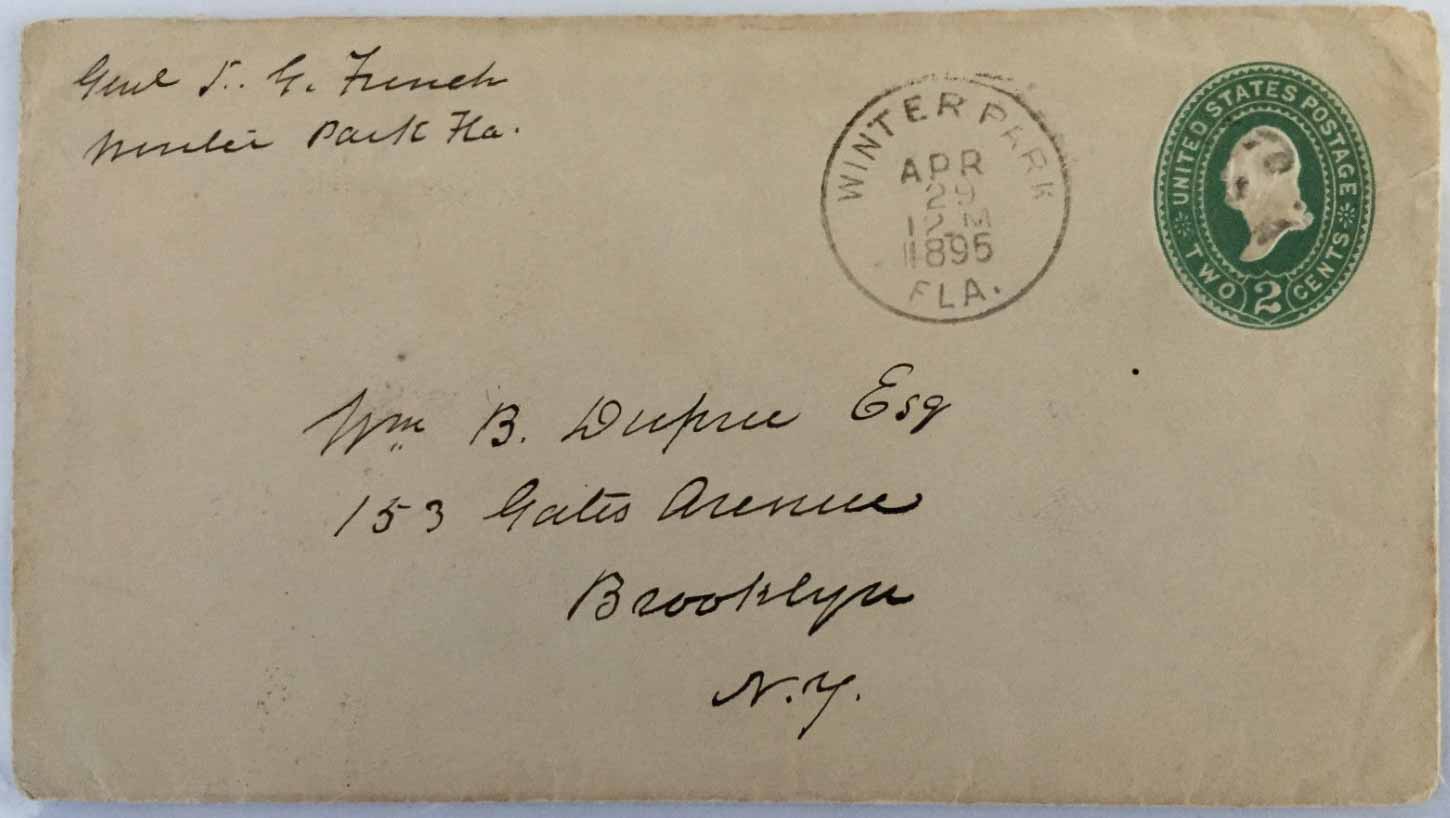 Genl S. G. French
Winter Park Fla.
WINTER PARK
APR
29
12 M
1895
FLA.
UNITED STATES POSTAGE
TWO 2 CENTS
Wm B. Dupree Esq
153 Gates Avenue
Brooklyn
N.Y.